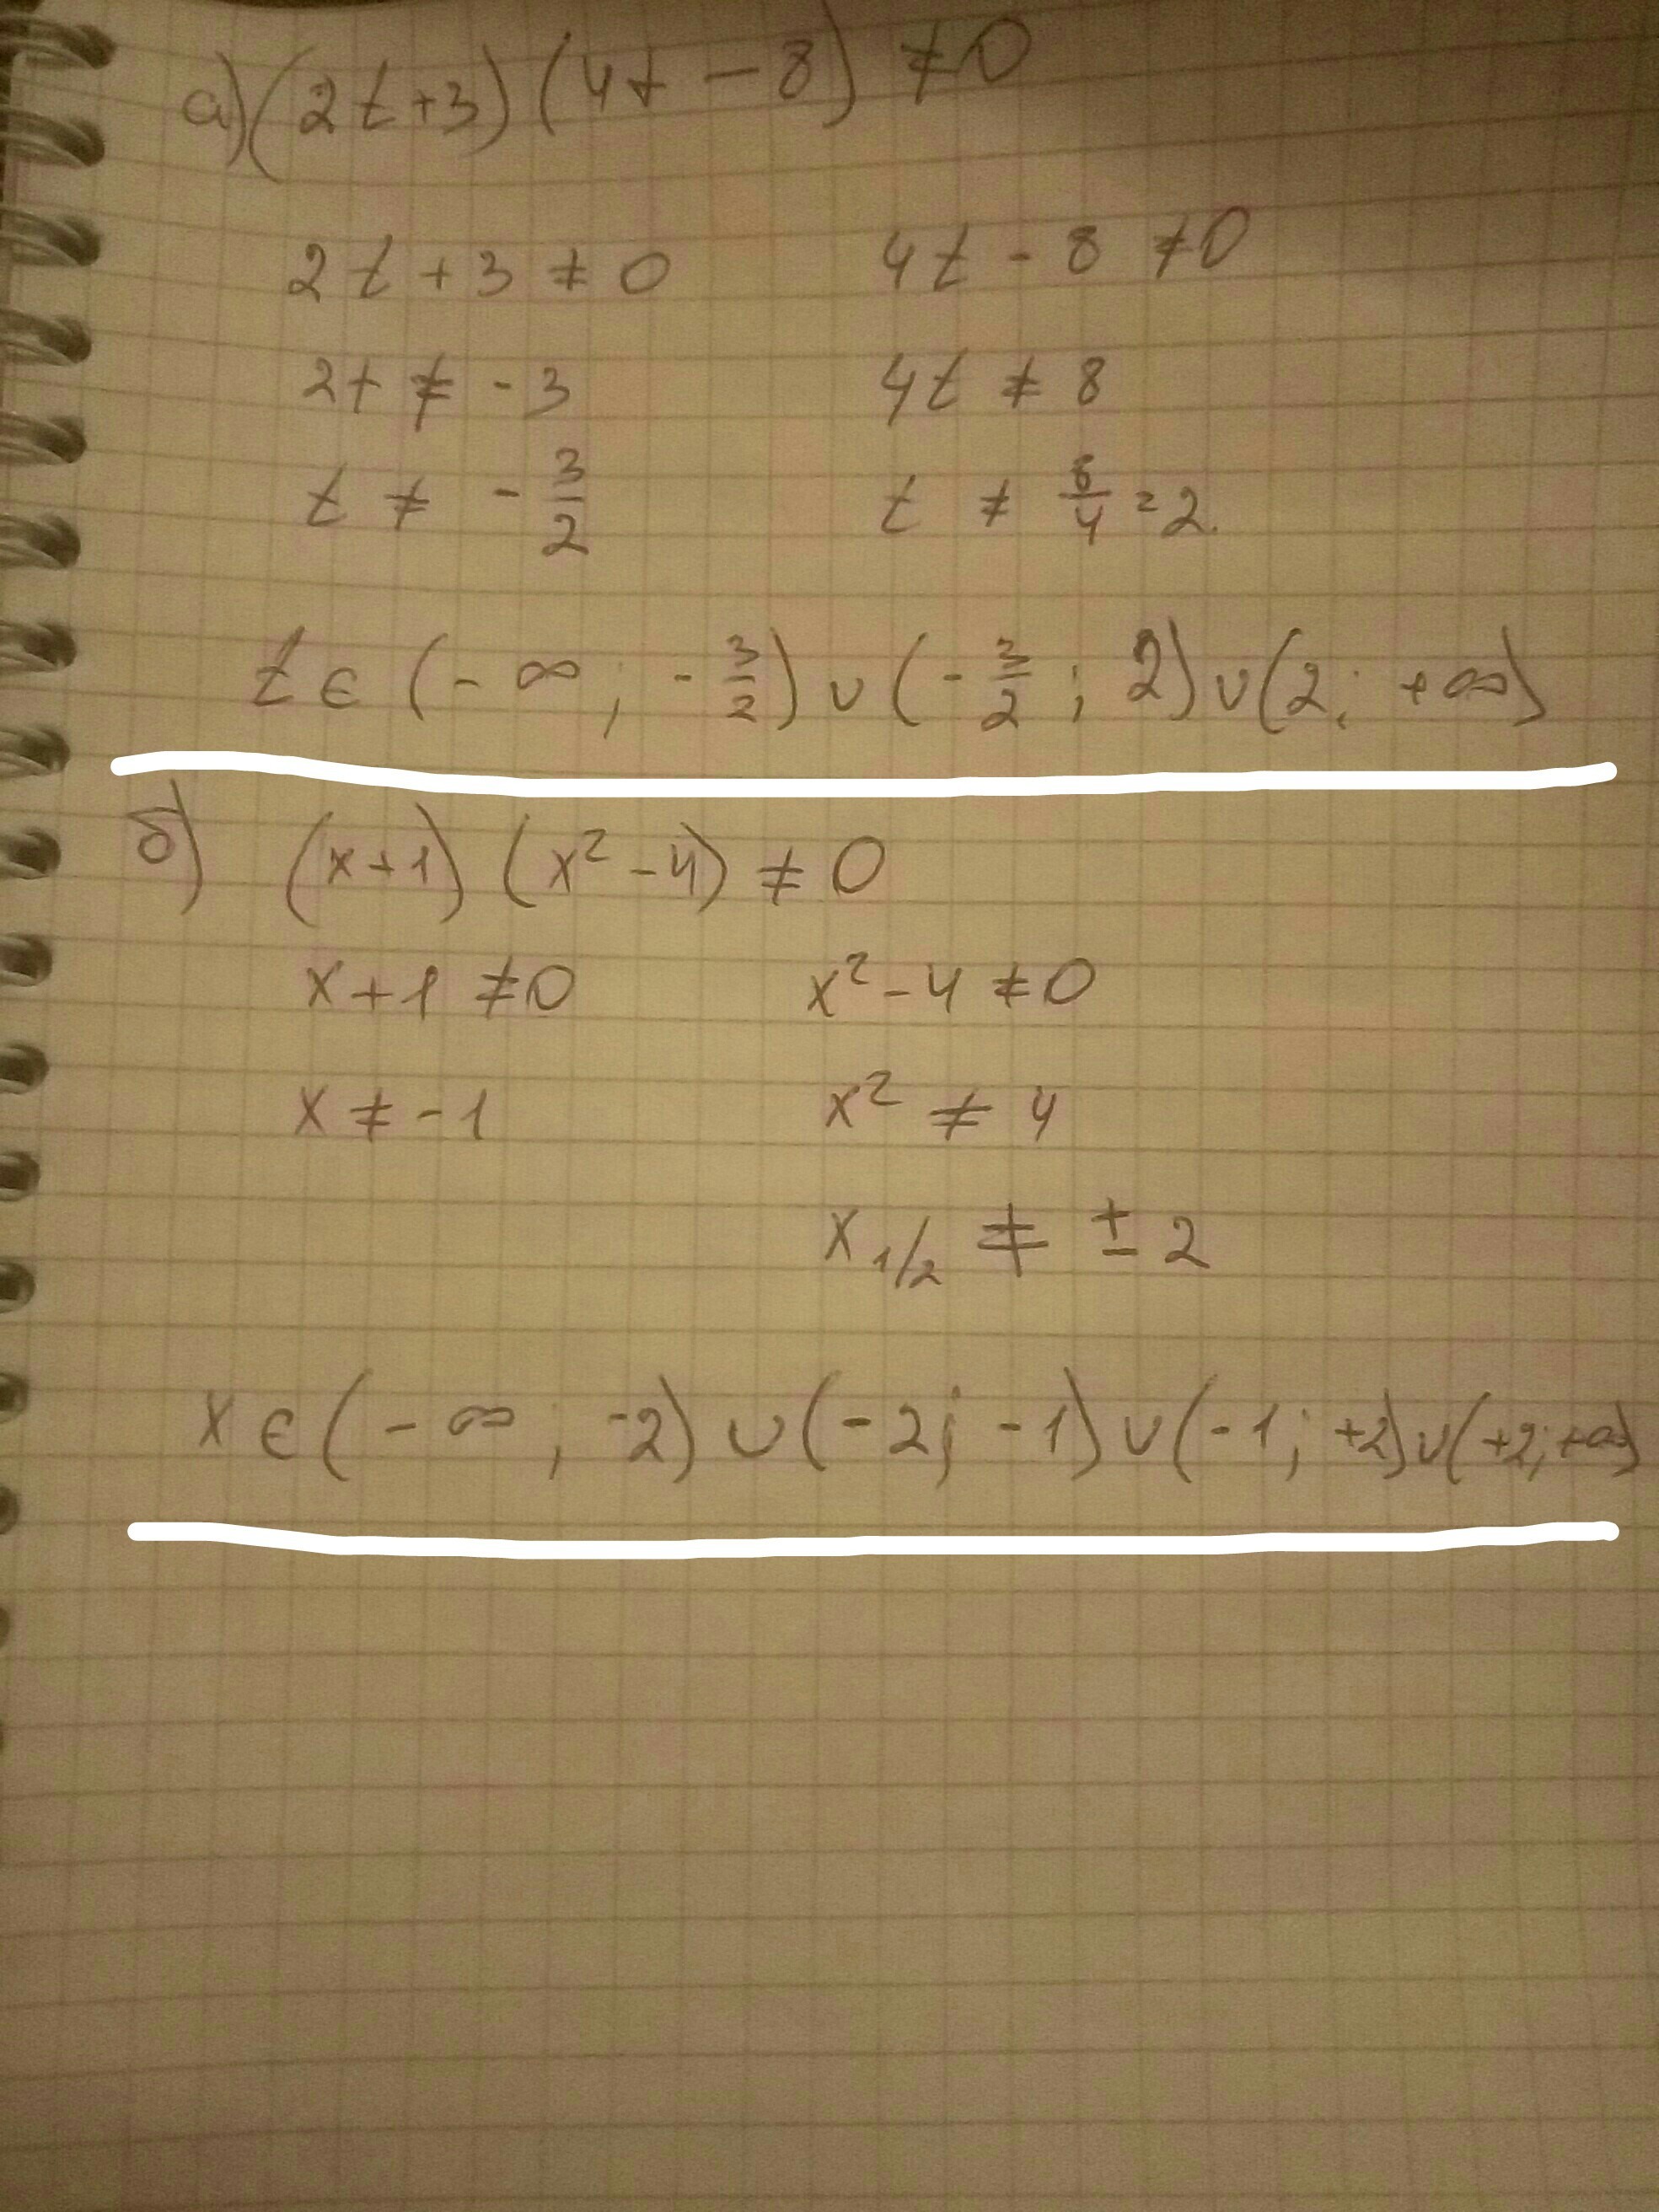 а) (2t+3) (4t – 8) ≠ 0
2t + 3 ≠ 0 4t - 8 ≠ 0
2t ≠ - 3 4t ≠ 8
t ≠ - 3/2 t ≠ 8/4 = 2.
t ∈ (- ∞ ; - 3/2) ∪ (- 3/2 ; 2) ∪ (2; +∞)
б) (x+1) (x² - 4) ≠ 0
x + 1 ≠ 0 x² - 4 ≠ 0
x ≠ - 1 x² ≠ 4
x 1/2 ≠ ± 2
x ∈ (- ∞ ; -2) ∪ (-2; -1) ∪ (-1; +2) ∪ (+2; +∞)